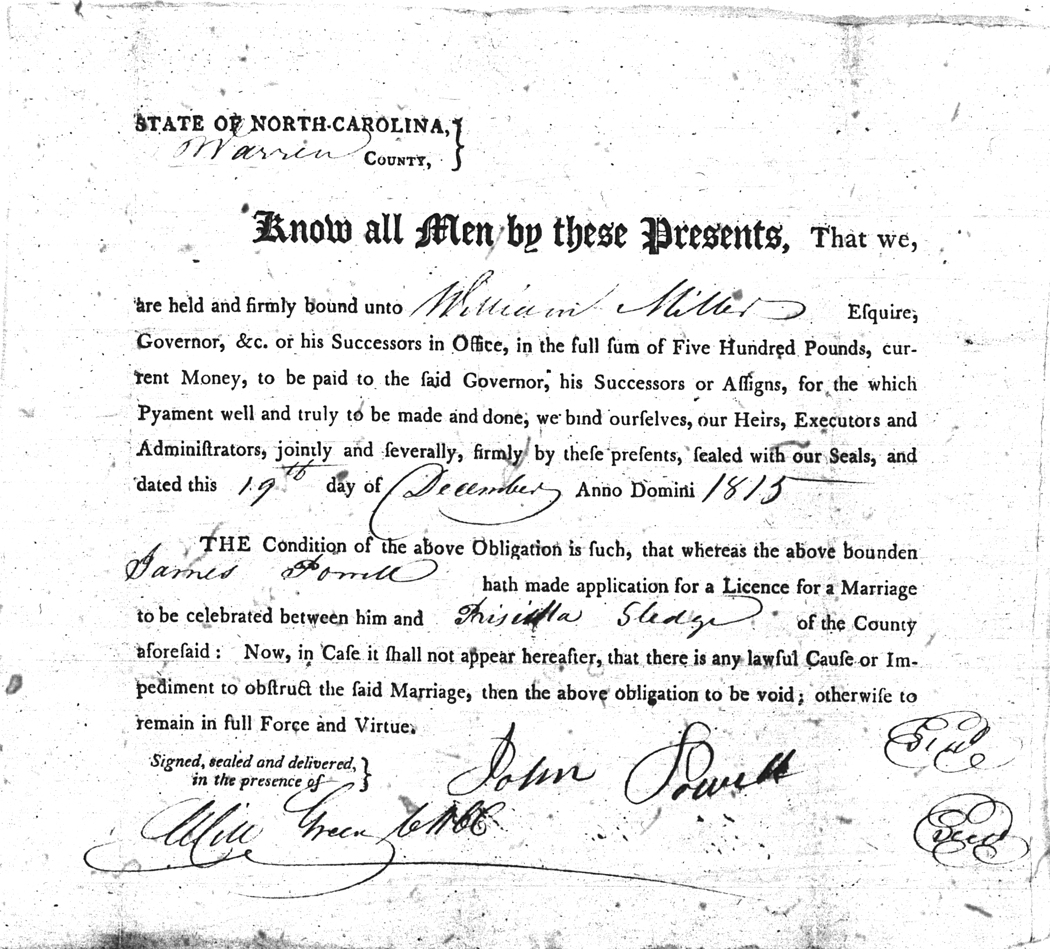 STATE OF NORTH-CAROLINA,
Warren COUNTY,
Know all Men by these Presents, That we,
are held and firmly bound unto William Miller Eſquire,
Governor, &c. or his Successors in Office, in the full ſum of Five Hundred Pounds, cur-
rent Money, to be paid to the ſaid Governor, his Successors or Aſſigns, for the which
Pyament well and truly to be made and done, we bind ourſelves, our Heirs, Executors and
Adminiſtrators, jointly and ſeverally, firmly by theſe preſents, ſealed with our Seals, and
dated this 19th day of December Anno Domini 1815
THE Condition of the above Obligation is ſuch, that whereas the above bounden
James Powell hath made application for a Licence for a Marriage
to be celebrated between him and Priscilla Sledge of the County
aforeſaid: Now, in Caſe it ſhall not appear hereafter, that there is any lawful Cauſe or Im-
pediment to obſtruct the ſaid Marriage, then the above obligation to be void; otherwiſe to
remain in full Force and Virtue.
Signed, sealed and delivered,
in the presence of
John Powell Seal
Green Seal